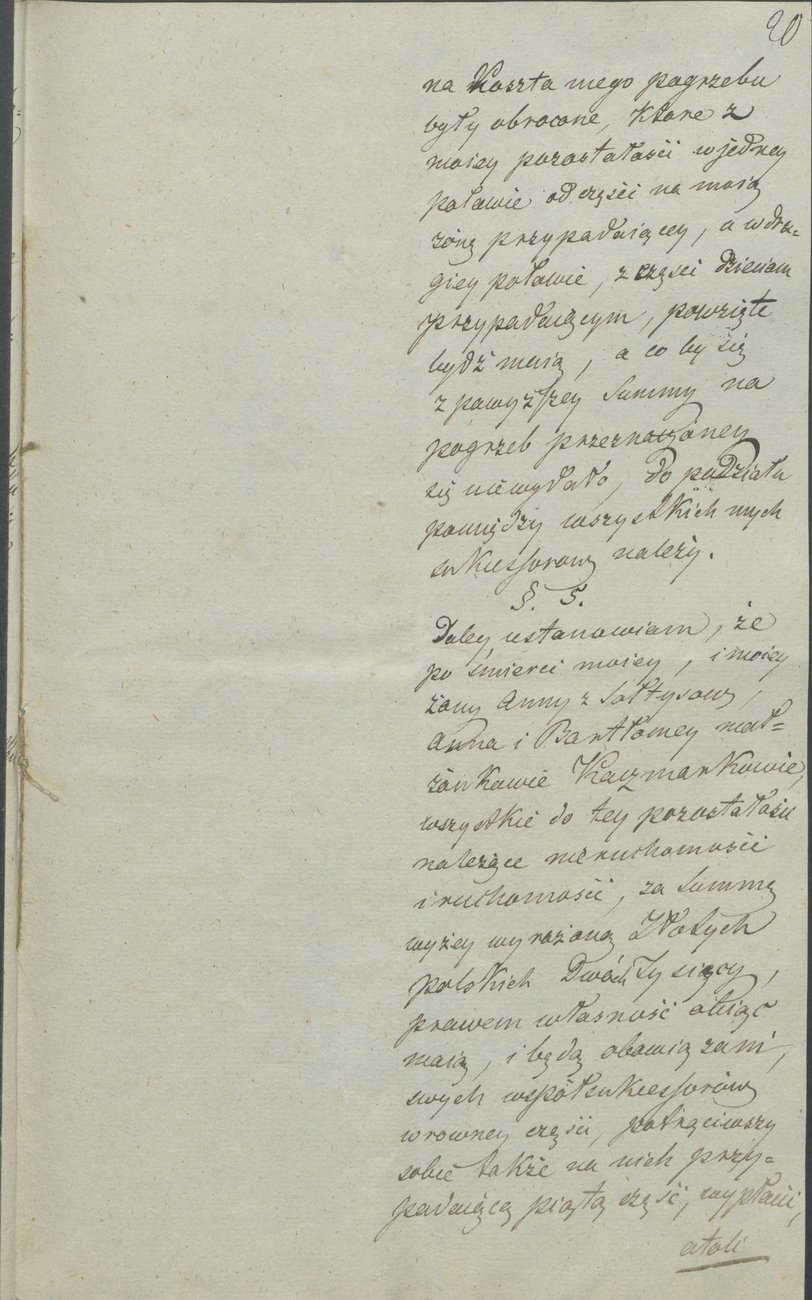 20
na Koszta mego pogrzebu
były obrocone, Ktore z
moiey pozostałości w jedney
połowie od części na moią
żonę przypadaiącey, a w dru-
giey połowie, z części dzieciom
przypadaiącym, powzięte
bydź maią, a co by się
z powyższey Summy na
pogrzeb przeznaczoney
się niewydało, do podziału
pomiędzy wszystkich mych
sukcessorow należy.
§. 5.
Daley ustanowiam, że
po śmierci moiey, i moiey
żony Anny z Sołtysow,
Anna i Bartłomey mał-
żonkowie Kaczmarkowie,
wszystkie do tey pozostałości
należące nieruchomości
i ruchomości, za Summę
wyżey wyrażoną Złotych
polskich Dwóch Tysięcy,
prawem własność obiąć
maią, i będą obowiązani,
swych współsukcessorów
w rowney części, potrąciwszy
sobie także na nich przy-
padaiącą piątą część, wypłacić,
atoli